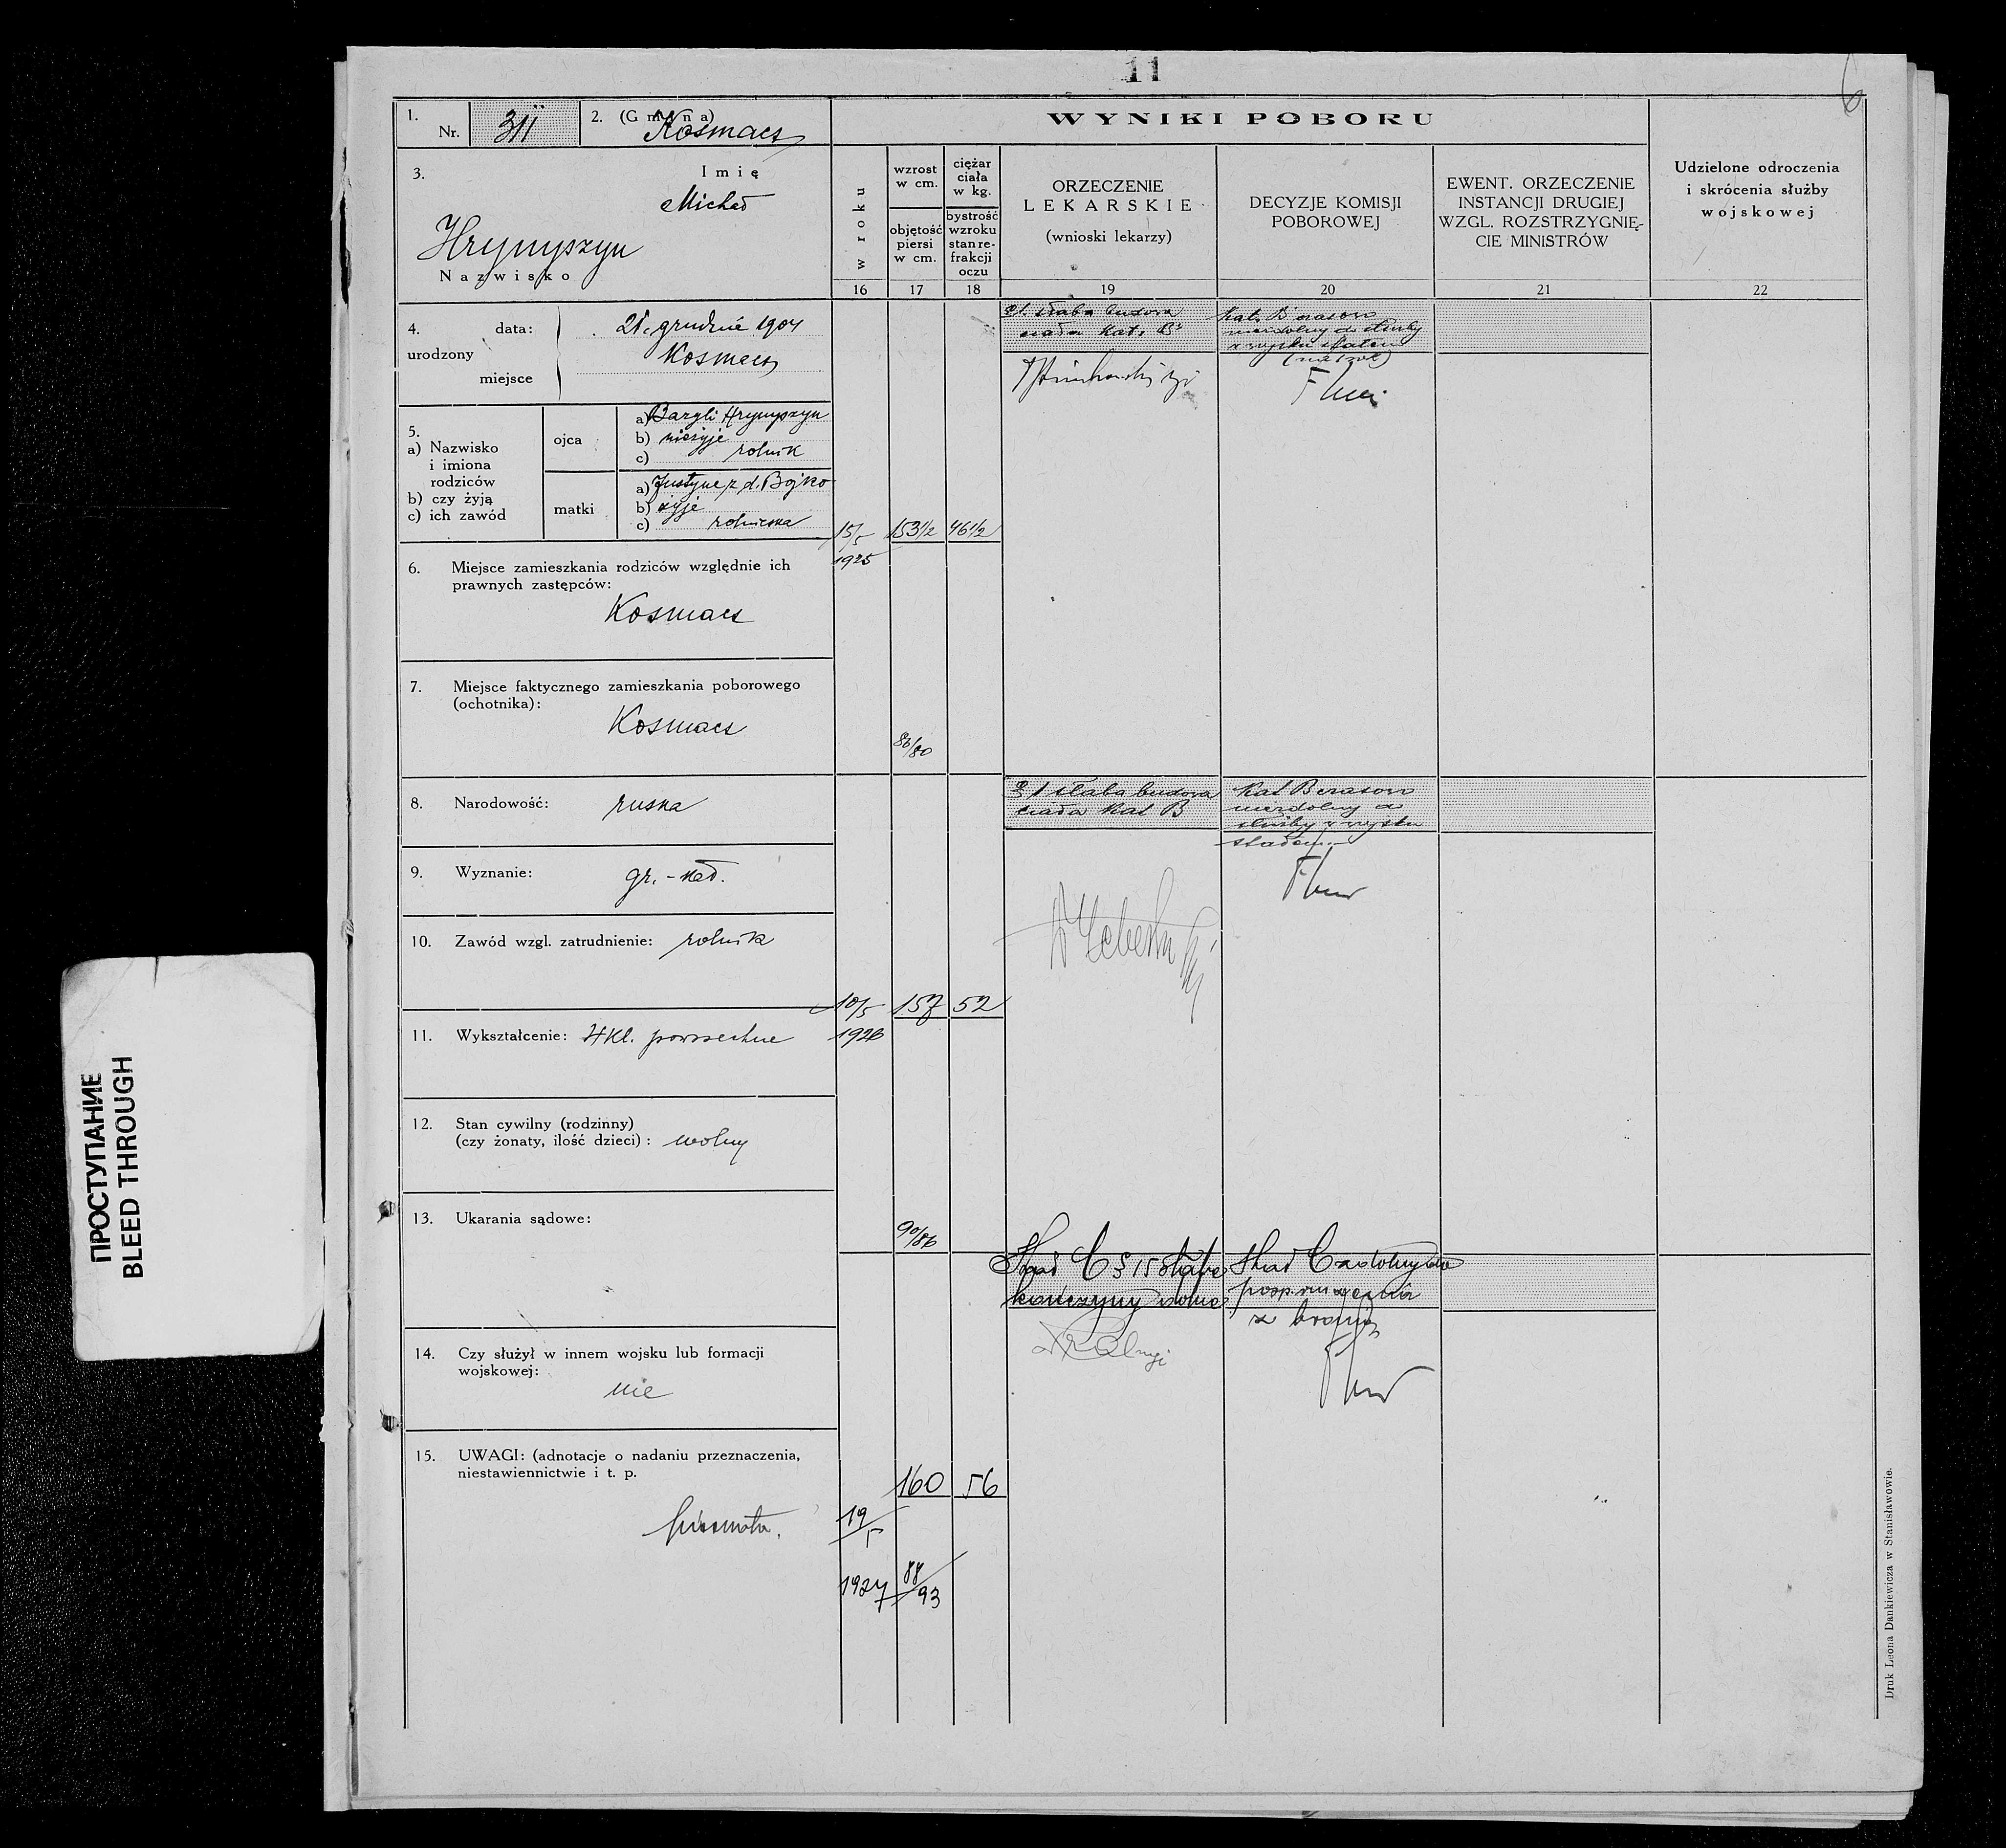 11
6
1.
Nr. 311
2. (Gmina) Kosmacz
WYNIKI POBORU
3.
Imię
Michał
Hrynyszyn
Nazwisko
w roku
wzrost
w cm.
objętość
piersi
w cm.
ciężar
ciała
w kg.
bystrość
wzroku
stan re-
frakcji
oczu
ORZECZENIE
LEKARSKIE
(wnioski lekarzy)
DECYZJE KOMISJI
POBOROWEJ
EWENT. ORZECZENIE
INSTANCJI DRUGIEJ
WZGL. ROZSTRZYGNIĘ-
CIE MINISTRÓW
Udzielone odroczenia
i skrócenia służby
wojskowej
16 17 18 19 20 21 22
4. data: 21. grudnia 1904
urodzony
Kosmacz
miejsce
słaba budowa
ciała kat. B
kat. B czasowo
niezdolny do służby
w wojsku stałem
5.
a) Nazwisko
i imiona
rodziców
b) czy żyją
c) ich zawód
ojca
a) Bazyli Hrynyszyn
b) nieżyje
c) rolnik
matki
a) Justyna z d. Bojko
b) żyje
c) rolniczka
15/5 153 1/2 46 1/2
1925
6. Miejsce zamieszkania rodziców względnie ich
prawnych zastępców:
Kosmacz
7. Miejsce faktycznego zamieszkania poborowego
(ochotnika):
Kosmacz
86/80
§ 1 słaba budowa
ciała kat B
kat B czasowo
niezdolny do
służby w wojsku
stałem.
8. Narodowość: ruska
9. Wyznanie: gr. - kat.
10. Zawód wzgl. zatrudnienie: rolnik
10/5 157 52
1926
11. Wykształcenie: 4 kl. powszechne
12. Stan cywilny (rodzinny)
(czy żonaty, ilość dzieci): wolny
13. Ukarania sądowe:
90/86
C § 15
kończyny dolne
C zdolny do
posp. ruszenia
z bronią
14. Czy służył w innem wojsku lub formacji
wojskowej:
nie
15. UWAGI: (adnotacje o nadaniu przeznaczenia,
niestawiennictwie i t. p.
160 56
19/5
1927 88/93
Druk Leona Dankiewicza w Stanisławowie.
ПРОСТУПАНИЕ
BLEED THROUGH